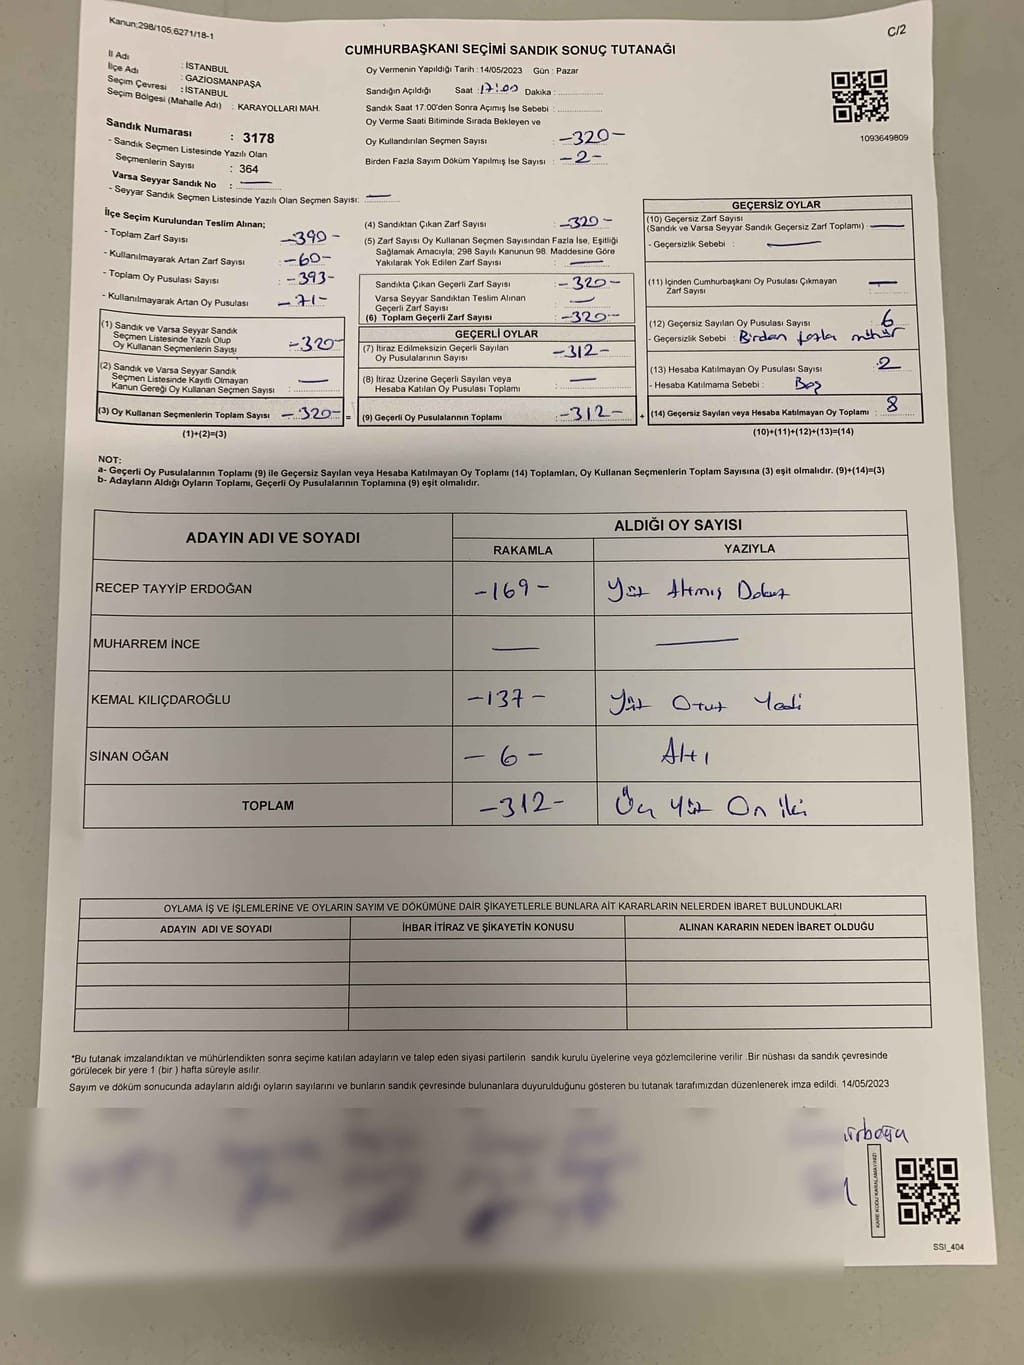 Kanun:298/105,6271/18-1
C/2
CUMHURBAŞKANI SEÇİMİ SANDIK SONUÇ TUTANAĞI
İl Adı : İSTANBUL
İlçe Adı : GAZİOSMANPAŞA
Seçim Çevresi : İSTANBUL
Seçim Bölgesi (Mahalle Adı) : KARAYOLLARI MAH.
Sandık Numarası : 3178
- Sandık Seçmen Listesinde Yazılı Olan
Seçmenlerin Sayısı : 364
Varsa Seyyar Sandık No : —
- Seyyar Sandık Seçmen Listesinde Yazılı Olan Seçmen Sayısı: —
Oy Vermenin Yapıldığı Tarih : 14/05/2023 Gün : Pazar
Sandığın Açıldığı Saat : 17:00 Dakika :
Sandık Saat 17.00'den Sonra Açımış İse Sebebi :
Oy Verme Saati Bitiminde Sırada Bekleyen ve
Oy Kullandırılan Seçmen Sayısı : -320-
Birden Fazla Sayım Döküm Yapılmış İse Sayısı : -2-
1093649809
İlçe Seçim Kurulundan Teslim Alınan;
- Toplam Zarf Sayısı -390-
- Kullanılmayarak Artan Zarf Sayısı -60-
- Toplam Oy Pusulası Sayısı -393-
- Kullanılmayarak Artan Oy Pusulası -71-
(1) Sandık ve Varsa Seyyar Sandık
Seçmen Listesinde Yazılı Olup
Oy Kullanan Seçmenlerin Sayısı -320-
(2) Sandık ve Varsa Seyyar Sandık
Seçmen Listesinde Kayıtlı Olmayan
Kanun Gereği Oy Kullanan Seçmen Sayısı : —
(3) Oy Kullanan Seçmenlerin Toplam Sayısı -320- =
(1)+(2)=(3)
(4) Sandıktan Çıkan Zarf Sayısı : -320-
(5) Zarf Sayısı Oy Kullanan Seçmen Sayısından Fazla İse, Eşitliği
Sağlamak Amacıyla, 298 Sayılı Kanunun 98. Maddesine Göre
Yakılarak Yok Edilen Zarf Sayısı : —
Sandıkta Çıkan Geçerli Zarf Sayısı : -320-
Varsa Seyyar Sandıktan Teslim Alınan
Geçerli Zarf Sayısı : —
(6) Toplam Geçerli Zarf Sayısı : -320-
GEÇERLİ OYLAR
(7) İtiraz Edilmeksizin Geçerli Sayılan
Oy Pusulalarının Sayısı : -312-
(8) İtiraz Üzerine Geçerli Sayılan veya
Hesaba Katılan Oy Pusulası Toplamı : —
(9) Geçerli Oy Pusulalarının Toplamı : -312- +
GEÇERSİZ OYLAR
(10) Geçersiz Zarf Sayısı
(Sandık ve Varsa Seyyar Sandık Geçersiz Zarf Toplamı) : —
- Geçersizlik Sebebi : —
(11) İçinden Cumhurbaşkanı Oy Pusulası Çıkmayan
Zarf Sayısı : —
(12) Geçersiz Sayılan Oy Pusulası Sayısı : 6
- Geçersizlik Sebebi : Birden fazla mühür
(13) Hesaba Katılmayan Oy Pusulası Sayısı : 2
- Hesaba Katılmama Sebebi : Boş
(14) Geçersiz Sayılan veya Hesaba Katılmayan Oy Toplamı : 8
(10)+(11)+(12)+(13)=(14)
NOT:
a- Geçerli Oy Pusulalarının Toplamı (9) ile Geçersiz Sayılan veya Hesaba Katılmayan Oy Toplamı (14) Toplamları, Oy Kullanan Seçmenlerin Toplam Sayısına (3) eşit olmalıdır. (9)+(14)=(3)
b- Adayların Aldığı Oyların Toplamı, Geçerli Oy Pusulalarının Toplamına (9) eşit olmalıdır.
ADAYIN ADI VE SOYADI
ALDIĞI OY SAYISI
RAKAMLA YAZIYLA
RECEP TAYYİP ERDOĞAN -169- Yüz Altmış Dokuz
MUHARREM İNCE — —
KEMAL KILIÇDAROĞLU -137- Yüz Otuz Yedi
SİNAN OĞAN -6- Altı
TOPLAM -312- Üç Yüz On iki
OYLAMA İŞ VE İŞLEMLERİNE VE OYLARIN SAYIM VE DÖKÜMÜNE DAİR ŞİKAYETLERLE BUNLARA AİT KARARLARIN NELERDEN İBARET BULUNDUKLARI
ADAYIN ADI VE SOYADI İHBAR İTİRAZ VE ŞİKAYETİN KONUSU ALINAN KARARIN NEDEN İBARET OLDUĞU
*Bu tutanak imzalandıktan ve mühürlendikten sonra seçime katılan adayların ve talep eden siyasi partilerin sandık kurulu üyelerine veya gözlemcilerine verilir .Bir nüshası da sandık çevresinde
görülecek bir yere 1 (bir ) hafta süreyle asılır.
Sayım ve döküm sonucunda adayların aldığı oyların sayılarını ve bunların sandık çevresinde bulunanlara duyurulduğunu gösteren bu tutanak tarafımızdan düzenlenerek imza edildi. 14/05/2023
KARE KODU KARALAMAYINIZ!
SSI_404